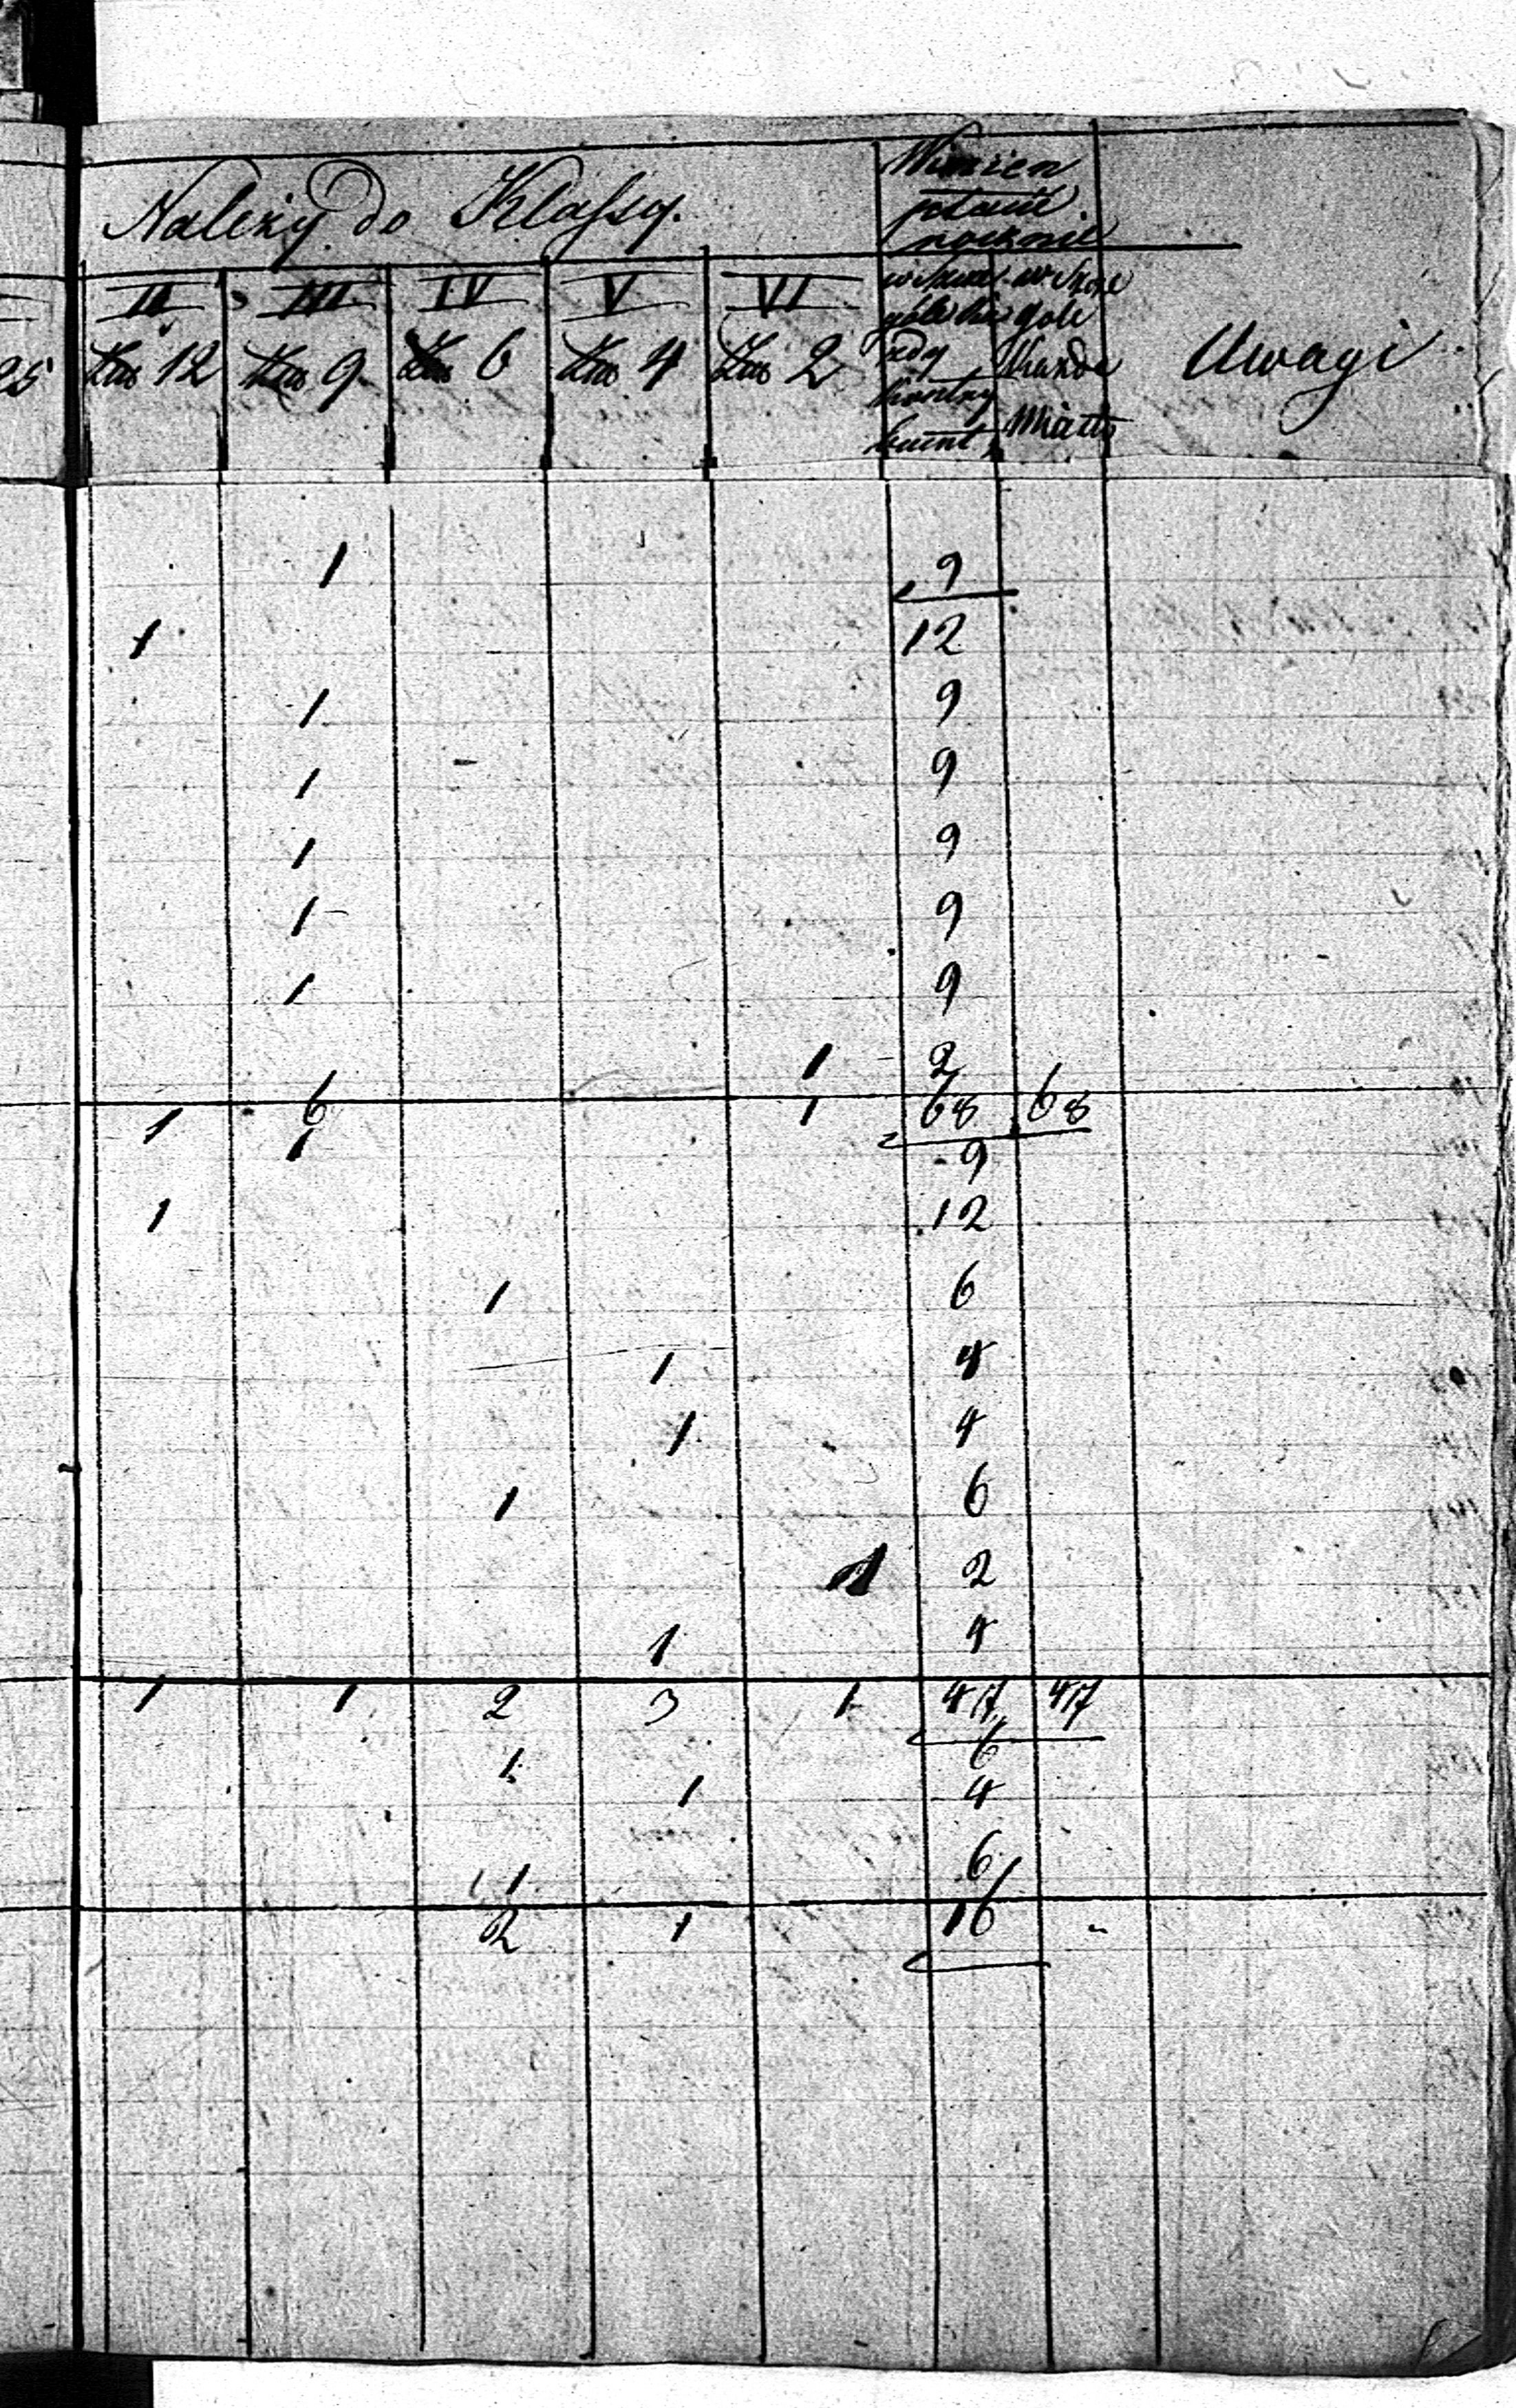 Należy do Klassy.
II III IV V VI
25 12 9 6 4 2
Winien
płacić
rocznie
w szcze w szcze
góle
każdy
kontry
buent
Każde
Miasto
Uwagi
1 9
1 12
1 9
1 9
1 9
1 9
1 9
1 2
1 6 1 68 68
1 9
1 12
1 6
1 4
1 4
1 6
1 2
1 4
1 1 2 3 1 47 47
1 6
1 4
1 6
2 1 16 -